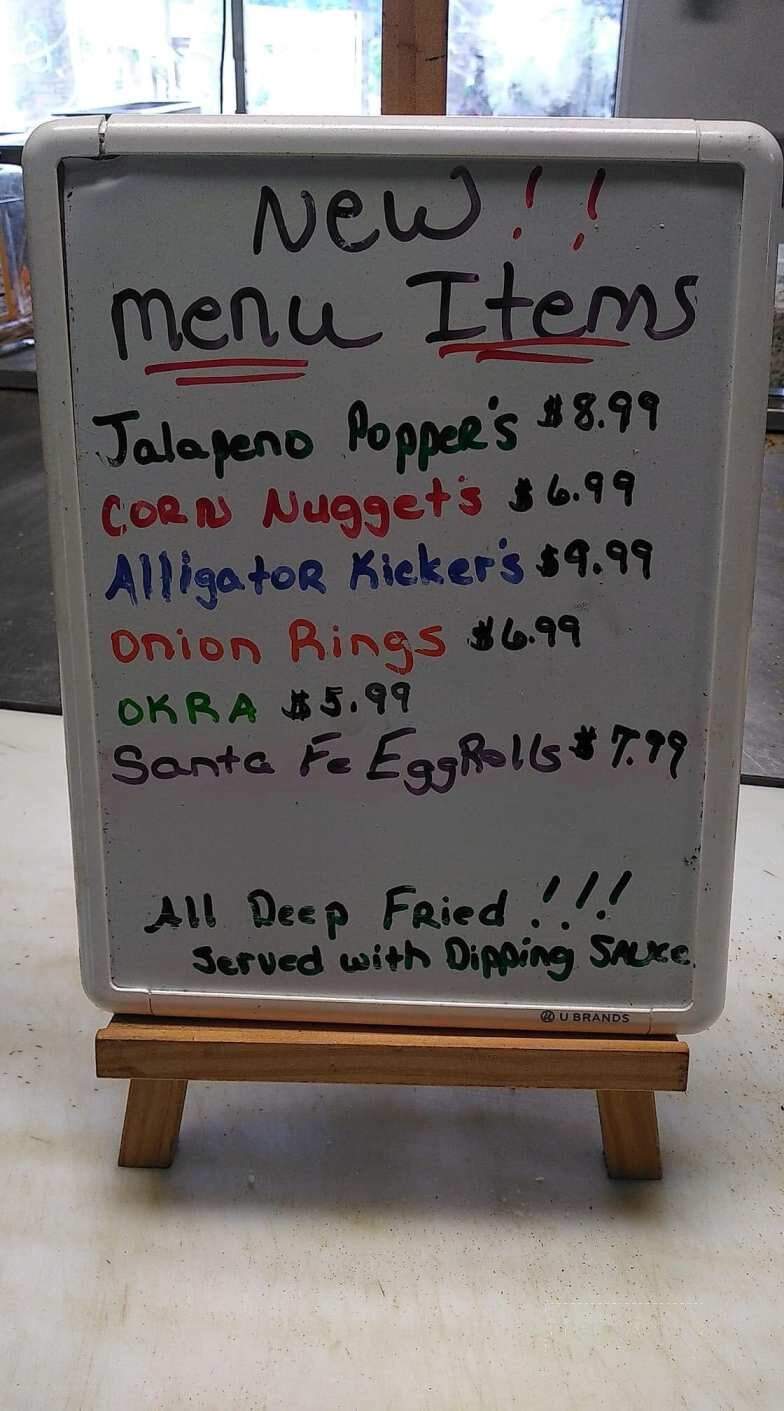 New!!
menu Items
Jalapeno Popper's $8.99
CORN Nugget's $6.99
AlligatoR Kicker's $9.99
Onion Rings $6.99
OKRA $5.99
Santa Fe EggRolls $7.99
All Deep FRied!!!
Served with Dipping SAUCe.
U BRANDS